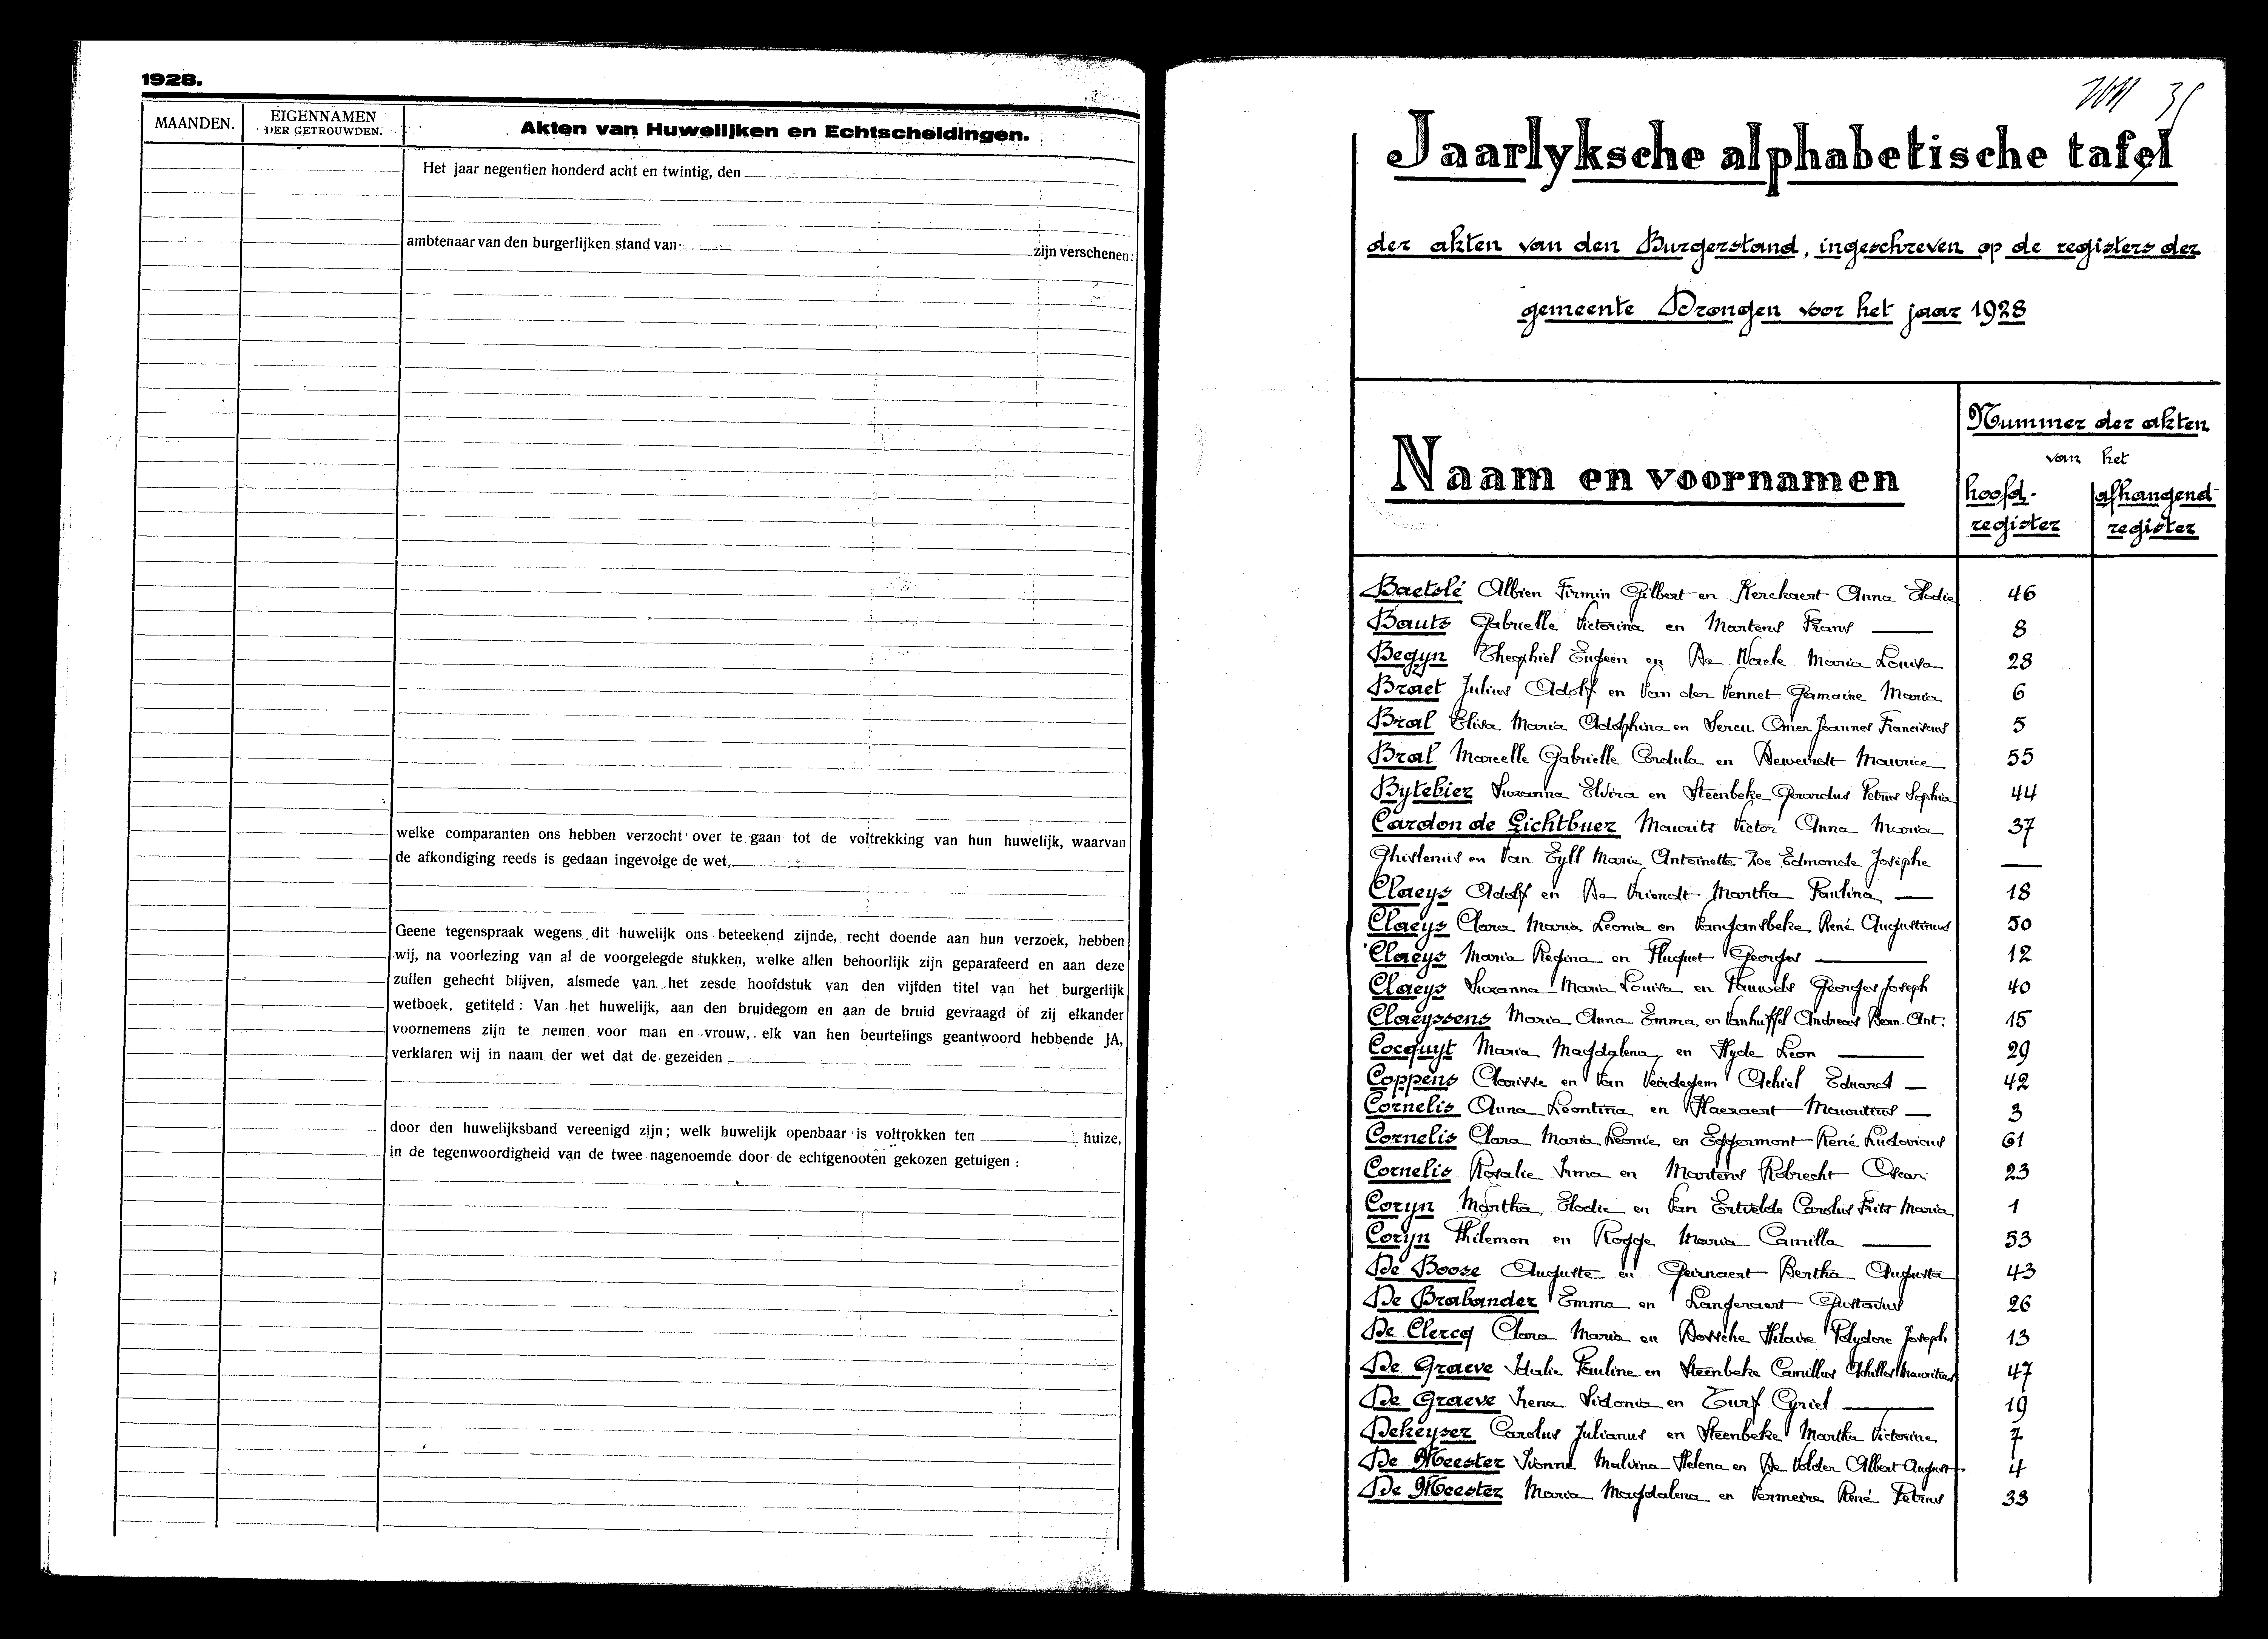 1928.
MAANDEN.
EIGENNAMEN
DER GETROUWDEN.
Akten van Huwelijken en Echtscheidingen.
Het jaar negentien honderd acht en twintig, den
ambtenaar van den burgerlijken stand van
zijn verschenen:
welke comparanten ons hebben verzocht over te gaan tot de voltrekking van hun huwelijk, waarvan
de afkondiging reeds is gedaan ingevolge de wet,
Geene tegenspraak wegens dit huwelijk ons beteekend zijnde, recht doende aan hun verzoek, hebben
wij, na voorlezing van al de voorgelegde stukken, welke allen behoorlijk zijn geparafeerd en aan deze
zullen gehecht blijven, alsmede van het zesde hoofdstuk van den vijfden titel van het burgerlijk
wetboek, getiteld: Van het huwelijk, aan den bruidegom en aan de bruid gevraagd of zij elkander
voornemens zijn te nemen voor man en vrouw, elk van hen beurtelings geantwoord hebbende JA,
verklaren wij in naam der wet dat de gezeiden
door den huwelijksband vereenigd zijn; welk huwelijk openbaar is voltrokken ten huize,
in de tegenwoordigheid van de twee nagenoemde door de echtgenooten gekozen getuigen:
Jaarlyksche alphabetische tafel
der akten van den Burgerstand, ingeschreven op de registers der
gemeente Drongen voor het jaar 1928
Naam en voornamen
Nummer der akten
van het
hoofd-
register
afhangend
register
Baetslé Albien Firmin Gilbert en Kerckaert Anna Elodie 46
Bauts Gabrielle Victorina en Martens Frans — 8
Begyn Theophiel Eugeen en De Waele Maria Louisa 28
Braet Julius Adolf en Van der Vennet Gamaine Maria 6
Bral Elisa Maria Adolphina en Sercu Omer Joannes Franciscus 5
Bral Marcelle Gabrielle Cordula en Deweirdt Maurice 55
Bytebier Suzanna Elvira en Steenbeke Gerardus Petrus Sophia 44
Cardon de Lichtbuer Maurits Victor Anna Maria 37
Ghislenus en Van Eyll Marie Antoinette Zoe Edmonde Josèphe —
Claeys Adolf en De Vriendt Martha Paulina — 18
Claeys Clara Maria Leonia en Vangansbeke René Augustinus 50
Claeys Maria Regina en Huguet Georges — 12
Claeys Suzanna Maria Louisa en Pauwels Georges Joseph 40
Claeyssens Maria Anna Emma en Vanhuffel Andreas Bern. Ant. 15
Cocquyt Maria Magdalena en Hyde Leon — 29
Coppens Clarisse en Van Veirdegem Achiel Eduard — 42
Cornelis Anna Leontina en Haeraert Mauritius — 3
Cornelis Clara Maria Leonie en Eggermont René Ludovicus 61
Cornelis Rosalie Irma en Martens Robrecht Oscar 23
Coryn Martha Elodie en Van Ertvelde Carolus Frits Maria 1
Coryn Philemon en Rogge Maria Camilla — 53
De Boose Auguste en Geirnaert Bertha Augusta 43
De Brabander Emma en Langeraert Gustavus 26
De Clercq Clara Maria en Dossche Hilaire Polydore Joseph 13
De Graeve Idalie Pauline en Steenbeke Camillus Achilles Mauritius 47
De Graeve Irena Sidonia en Turf Cyriel — 19
Dekeyser Carolus Julianus en Steenbeke Martha Victorine 7
De Meester Ivonne Malvina Helena en De Volder Albert August 4
De Meester Maria Magdalena en Vermeire René Petrus 33